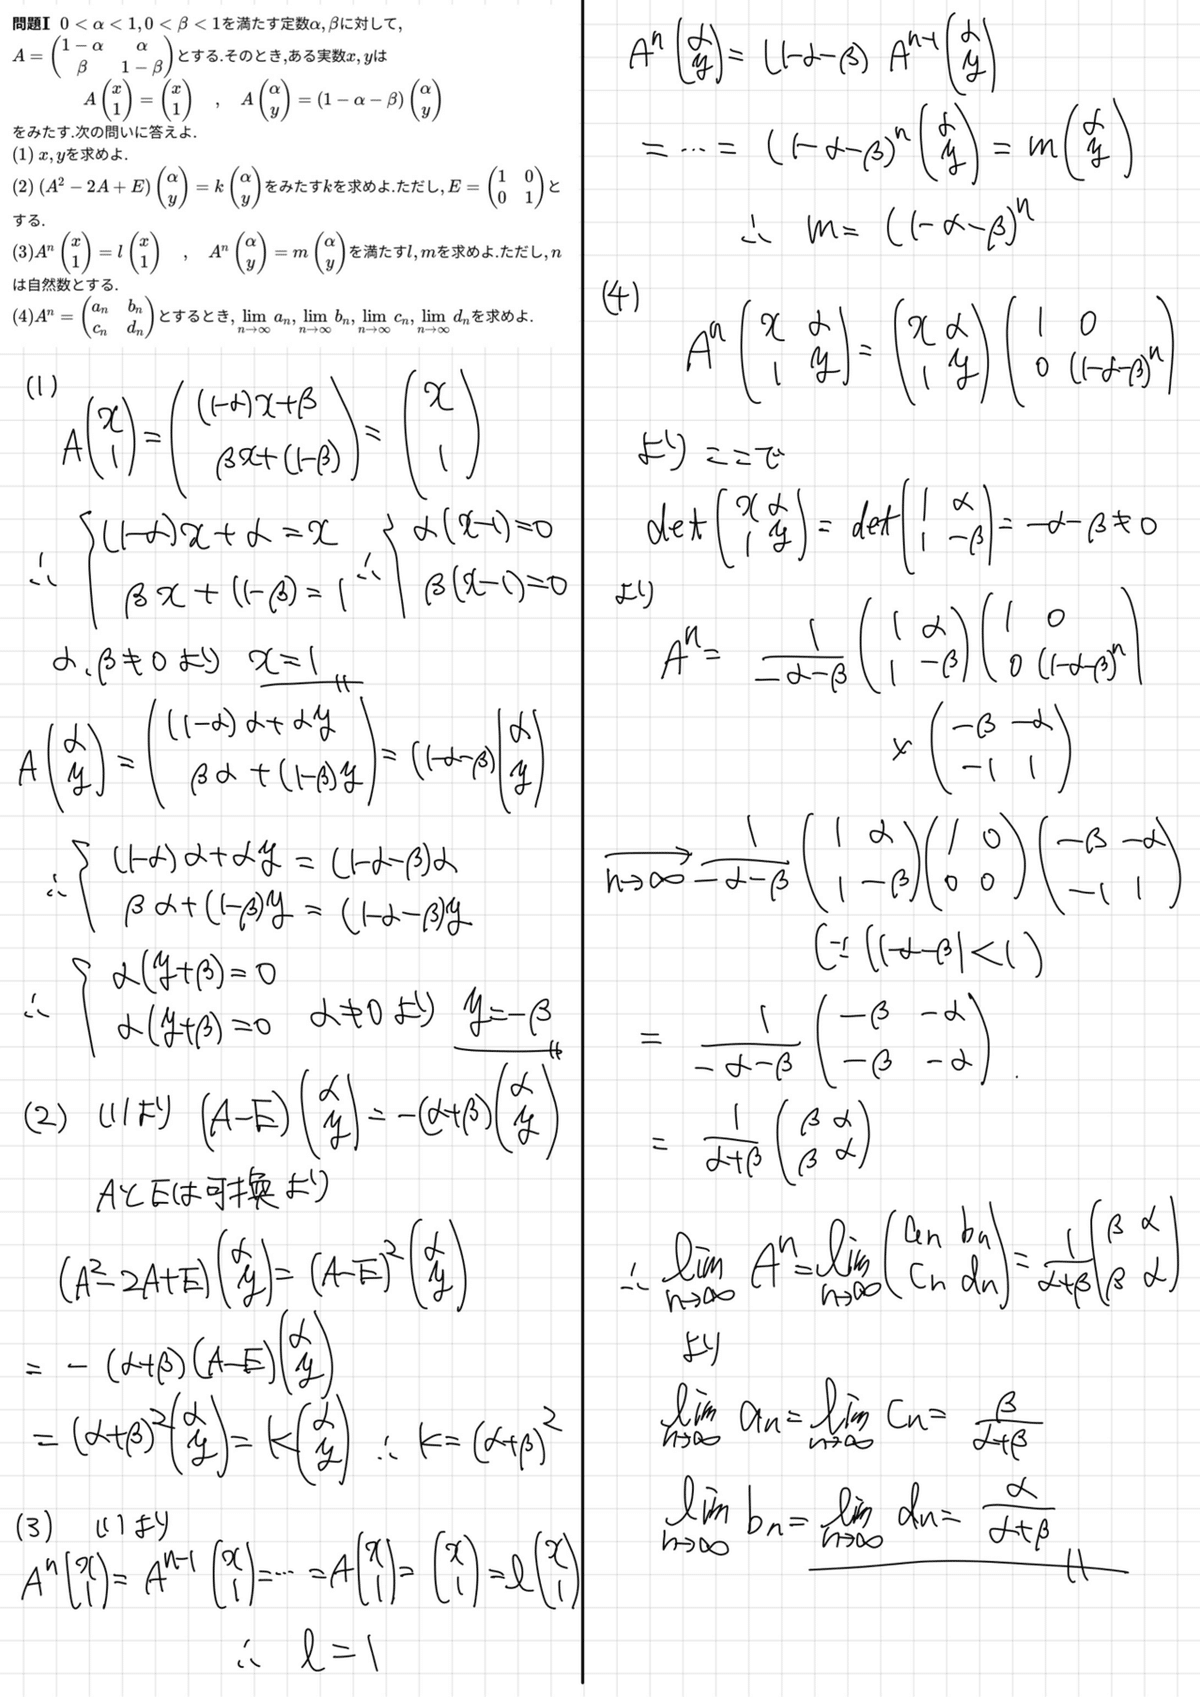 問題I 0 < α < 1, 0 < β < 1を満たす定数α, βに対して,
A = \begin{pmatrix} 1 − α & α \\ β & 1 − β \end{pmatrix} とする.そのとき,ある実数x, yは
A \begin{pmatrix} x \\ 1 \end{pmatrix} = \begin{pmatrix} x \\ 1 \end{pmatrix} , A \begin{pmatrix} α \\ y \end{pmatrix} = (1 − α − β) \begin{pmatrix} α \\ y \end{pmatrix}
をみたす.次の問いに答えよ.
(1) x, yを求めよ.
(2) (A² − 2A + E) \begin{pmatrix} α \\ y \end{pmatrix} = k \begin{pmatrix} α \\ y \end{pmatrix} をみたすkを求めよ.ただし, E = \begin{pmatrix} 1 & 0 \\ 0 & 1 \end{pmatrix} と
する.
(3)Aⁿ \begin{pmatrix} x \\ 1 \end{pmatrix} = l \begin{pmatrix} x \\ 1 \end{pmatrix} , Aⁿ \begin{pmatrix} α \\ y \end{pmatrix} = m \begin{pmatrix} α \\ y \end{pmatrix} を満たすl, mを求めよ.ただし, n
は自然数とする.
(4)Aⁿ = \begin{pmatrix} a_n & b_n \\ c_n & d_n \end{pmatrix} とするとき, \lim_{n→∞} a_n, \lim_{n→∞} b_n, \lim_{n→∞} c_n, \lim_{n→∞} d_nを求めよ.
(1)
A \begin{pmatrix} x \\ 1 \end{pmatrix} = \begin{pmatrix} (1-α)x+β \\ βx+(1-β) \end{pmatrix} = \begin{pmatrix} x \\ 1 \end{pmatrix}
∴ \begin{cases} (1-α)x+α=x \\ βx+(1-β)=1 \end{cases} ∴ \begin{cases} α(x-1)=0 \\ β(x-1)=0 \end{cases}
α、β≠0より x=1
A \begin{pmatrix} α \\ y \end{pmatrix} = \begin{pmatrix} (1-α)α+αy \\ βα+(1-β)y \end{pmatrix} = (1-α-β) \begin{pmatrix} α \\ y \end{pmatrix}
∴ \begin{cases} (1-α)α+αy = (1-α-β)α \\ βα+(1-β)y = (1-α-β)y \end{cases}
∴ \begin{cases} α(y+β)=0 \\ α(y+β)=0 \end{cases} α≠0より y=-β
(2) (1)より (A-E) \begin{pmatrix} α \\ y \end{pmatrix} = -(α+β) \begin{pmatrix} α \\ y \end{pmatrix}
AとEは可換より
(A²-2A+E) \begin{pmatrix} α \\ y \end{pmatrix} = (A-E)² \begin{pmatrix} α \\ y \end{pmatrix}
= -(α+β)(A-E) \begin{pmatrix} α \\ y \end{pmatrix}
= (α+β)² \begin{pmatrix} α \\ y \end{pmatrix} = k \begin{pmatrix} α \\ y \end{pmatrix} ∴ k=(α+β)²
(3) (1)より
Aⁿ \begin{pmatrix} x \\ 1 \end{pmatrix} = Aⁿ⁻¹ \begin{pmatrix} x \\ 1 \end{pmatrix} = … = A \begin{pmatrix} x \\ 1 \end{pmatrix} = \begin{pmatrix} x \\ 1 \end{pmatrix} = l \begin{pmatrix} x \\ 1 \end{pmatrix}
∴ l=1
Aⁿ \begin{pmatrix} α \\ y \end{pmatrix} = (1-α-β) Aⁿ⁻¹ \begin{pmatrix} α \\ y \end{pmatrix}
= … = (1-α-β)ⁿ \begin{pmatrix} α \\ y \end{pmatrix} = m \begin{pmatrix} α \\ y \end{pmatrix}
∴ m=(1-α-β)ⁿ
(4)
Aⁿ \begin{pmatrix} x & α \\ 1 & y \end{pmatrix} = \begin{pmatrix} x & α \\ 1 & y \end{pmatrix} \begin{pmatrix} 1 & 0 \\ 0 & (1-α-β)ⁿ \end{pmatrix}
より ここで
det \begin{pmatrix} x & α \\ 1 & y \end{pmatrix} = det \begin{pmatrix} 1 & α \\ 1 & -β \end{pmatrix} = -α-β≠0
より
Aⁿ = \frac{1}{-α-β} \begin{pmatrix} 1 & α \\ 1 & -β \end{pmatrix} \begin{pmatrix} 1 & 0 \\ 0 & (1-α-β)ⁿ \end{pmatrix}
× \begin{pmatrix} -β & -α \\ -1 & 1 \end{pmatrix}
\xrightarrow[n→∞]{} \frac{1}{-α-β} \begin{pmatrix} 1 & α \\ 1 & -β \end{pmatrix} \begin{pmatrix} 1 & 0 \\ 0 & 0 \end{pmatrix} \begin{pmatrix} -β & -α \\ -1 & 1 \end{pmatrix}
(∵ |1-α-β|<1)
= \frac{1}{-α-β} \begin{pmatrix} -β & -α \\ -β & -α \end{pmatrix}.
= \frac{1}{α+β} \begin{pmatrix} β & α \\ β & α \end{pmatrix}
∴ \lim_{n→∞} Aⁿ = \lim_{n→∞} \begin{pmatrix} a_n & b_n \\ c_n & d_n \end{pmatrix} = \frac{1}{α+β} \begin{pmatrix} β & α \\ β & α \end{pmatrix}
より
\lim_{n→∞} a_n = \lim_{n→∞} c_n = \frac{β}{α+β}
\lim_{n→∞} b_n = \lim_{n→∞} d_n = \frac{α}{α+β}